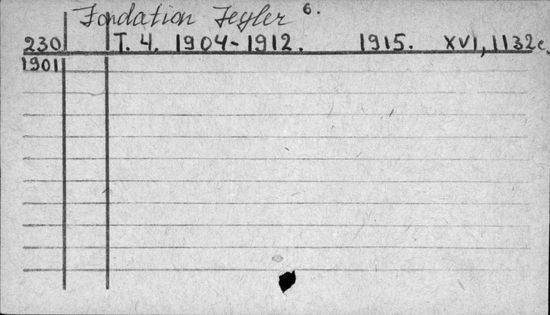 Fondation Teyler 6.
230 T. 4. 1904-1912. 1915. XVI, 1132c.
1901